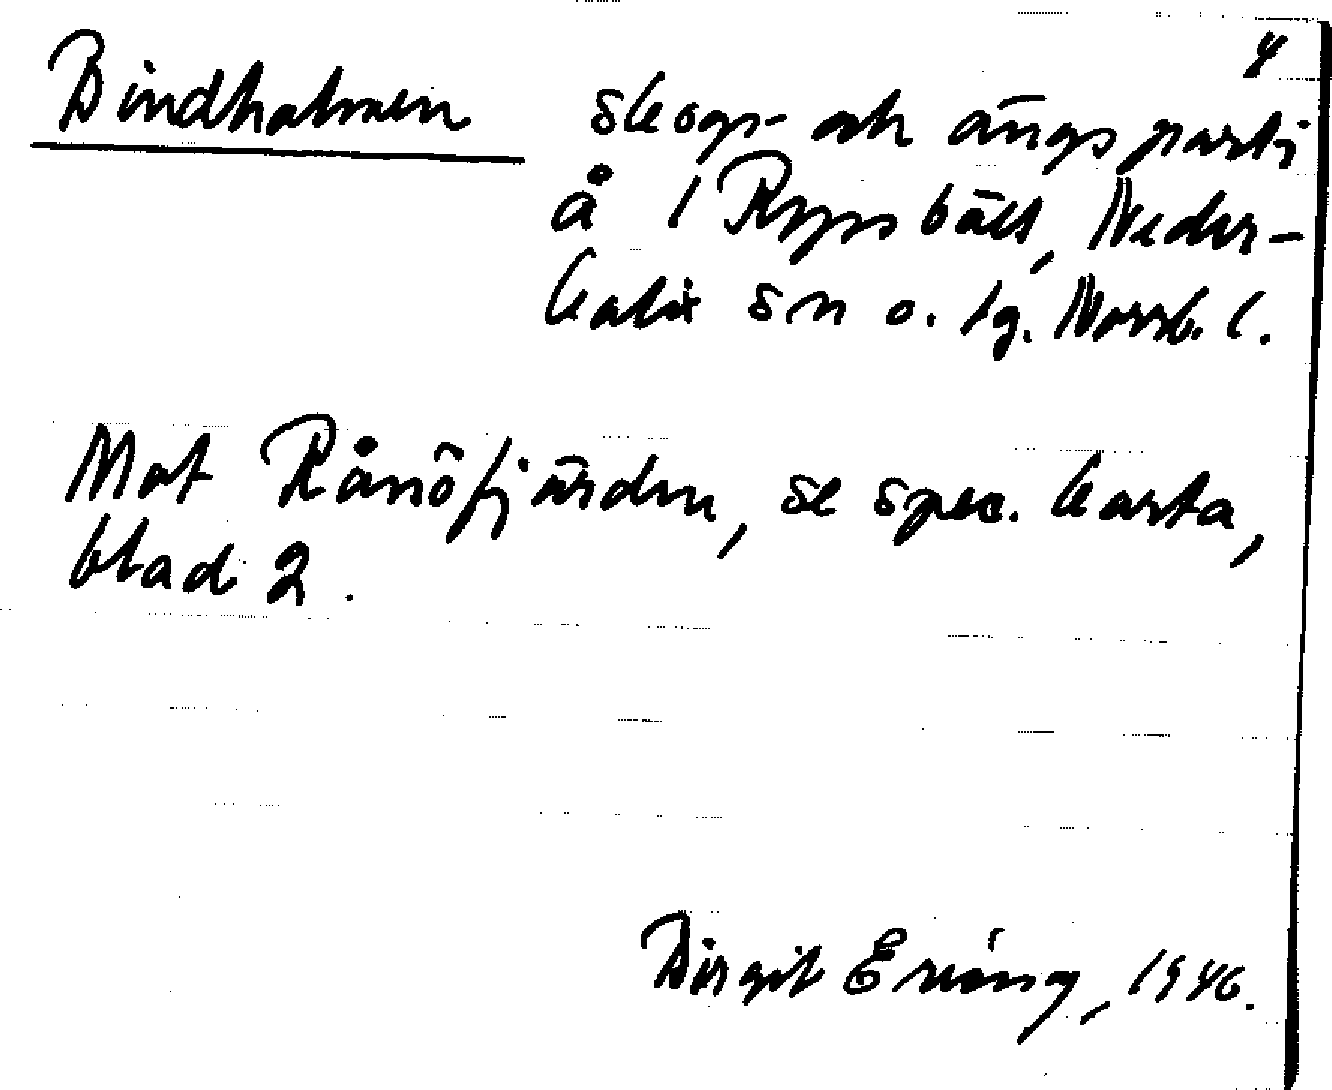 4
Bindholmen skogs- och ängsparti
å 1 Rypsbält, Neder-
kalix sn o. tg. Norrb. l.
Mot Rånöfjärden, se spec. karta,
blad 2.
Birgit Ering, 1946.